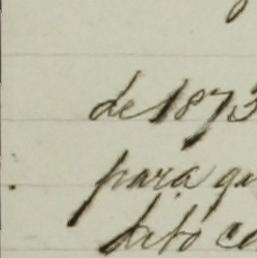 de 1873
para qu
dito co